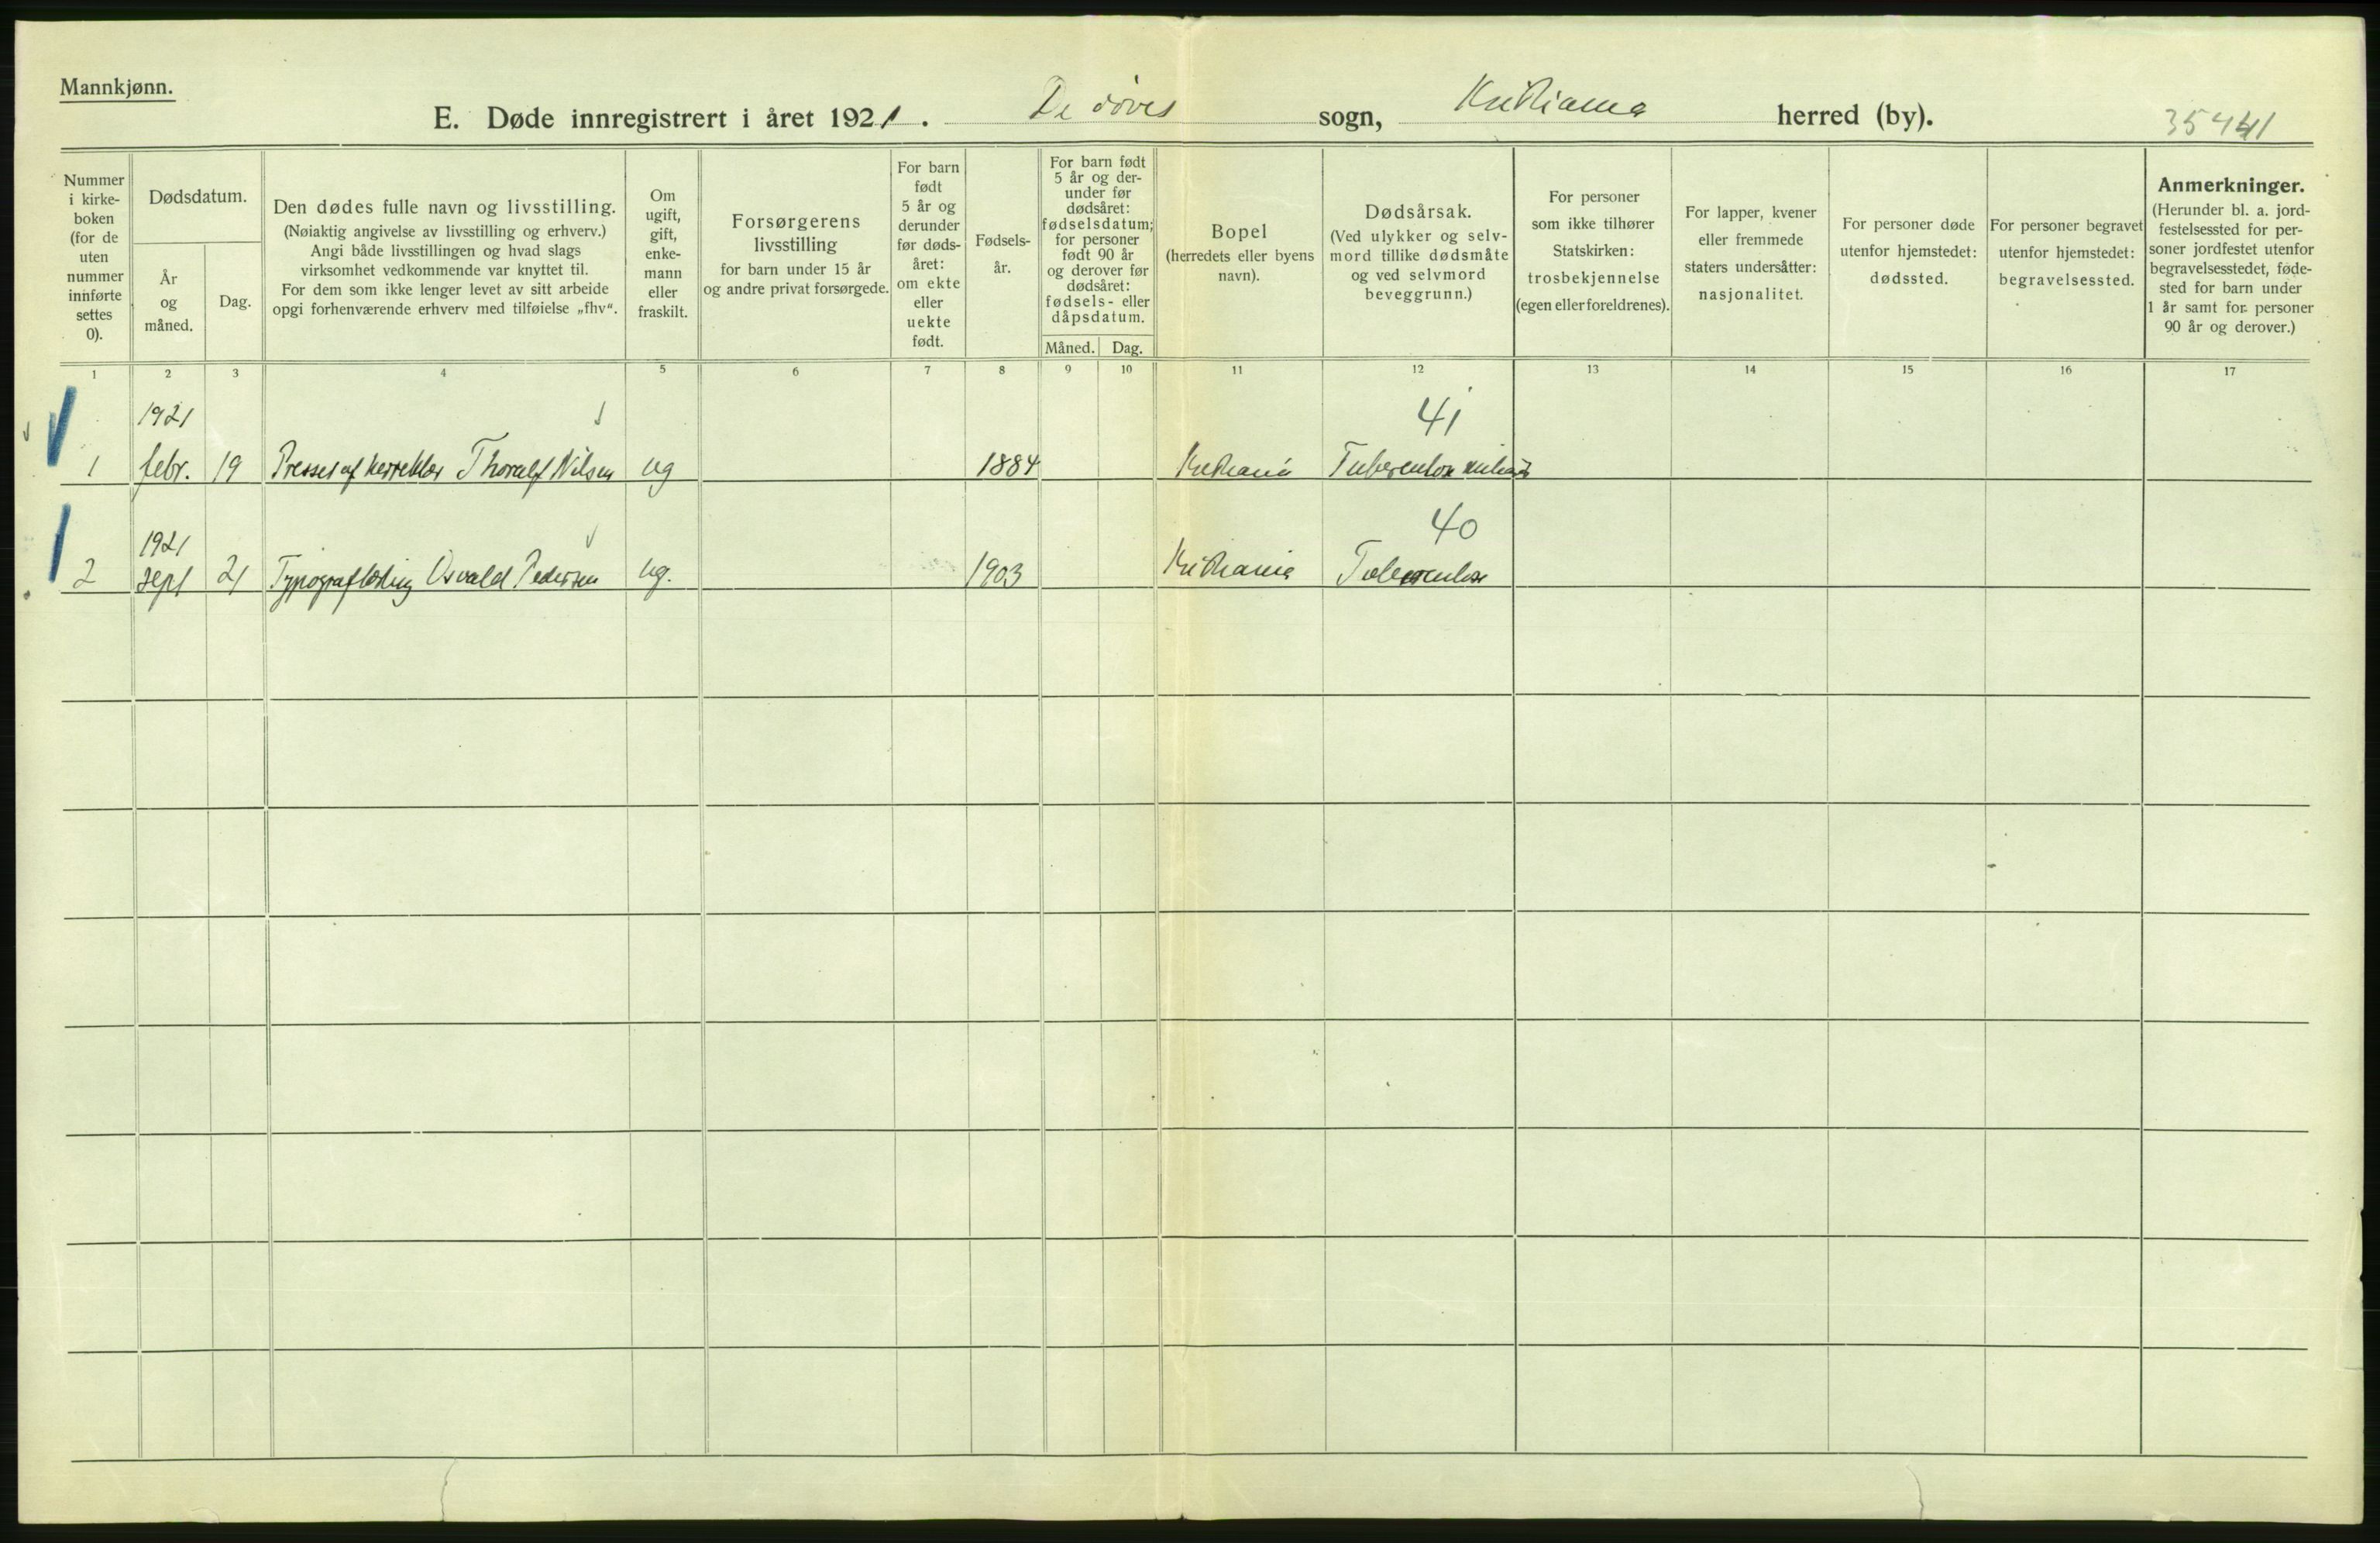 Mannkjønn.
E. Døde innregistrert i året 1921. De døves sogn, Kristiania herred (by).
35441
Nummer i kirke- boken (for de uten nummer innførte settes 0).
Dødsdatum.
År og måned.
Dag.
Den dødes fulle navn og livsstilling.
(Nøiaktig angivelse av livsstilling og erhverv.)
Angi både livsstillingen og hvad slags
virksomhet vedkommende var knyttet til.
For dem som ikke lenger levet av sitt arbeide
opgi forhenværende erhverv med tilføielse „fhv“.
Om ugift, gift, enke- mann eller fraskilt.
Forsørgerens
livsstilling
for barn under 15 år
og andre privat forsørgede.
For barn født 5 år og derunder før døds- året: om ekte eller uekte født.
Fødsels- år.
For barn født 5 år og der- under før dødsåret: fødselsdatum; for personer født 90 år og derover før dødsåret: fødsels- eller dåpsdatum.
Måned. Dag.
Bopel
(herredets eller byens
navn).
Dødsårsak.
(Ved ulykker og selv-
mord tillike dødsmåte
og ved selvmord
beveggrunn.)
For personer
som ikke tilhører
Statskirken:
trosbekjennelse
(egen eller foreldrenes).
For lapper, kvener
eller fremmede
staters undersåtter:
nasjonalitet.
For personer døde
utenfor hjemstedet:
dødssted.
For personer begravet
utenfor hjemstedet:
begravelsessted.
Anmerkninger.
(Herunder bl. a. jord-
festelsessted for per-
soner jordfestet utenfor
begravelsesstedet, føde-
sted for barn under
1 år samt for personer
90 år og derover.)
1 2 3 4 5 6 7 8 9 10 11 12 13 14 15 16 17
1921 41
1 febr. 19 Presser af herreklær Thoralf Nilsen ug 1884 Kristiania Tuberculose miliaris
1921 40
2 sept 21 Typograflærling Osvald Pedersen ug. 1903 Kristiania Tuberculose